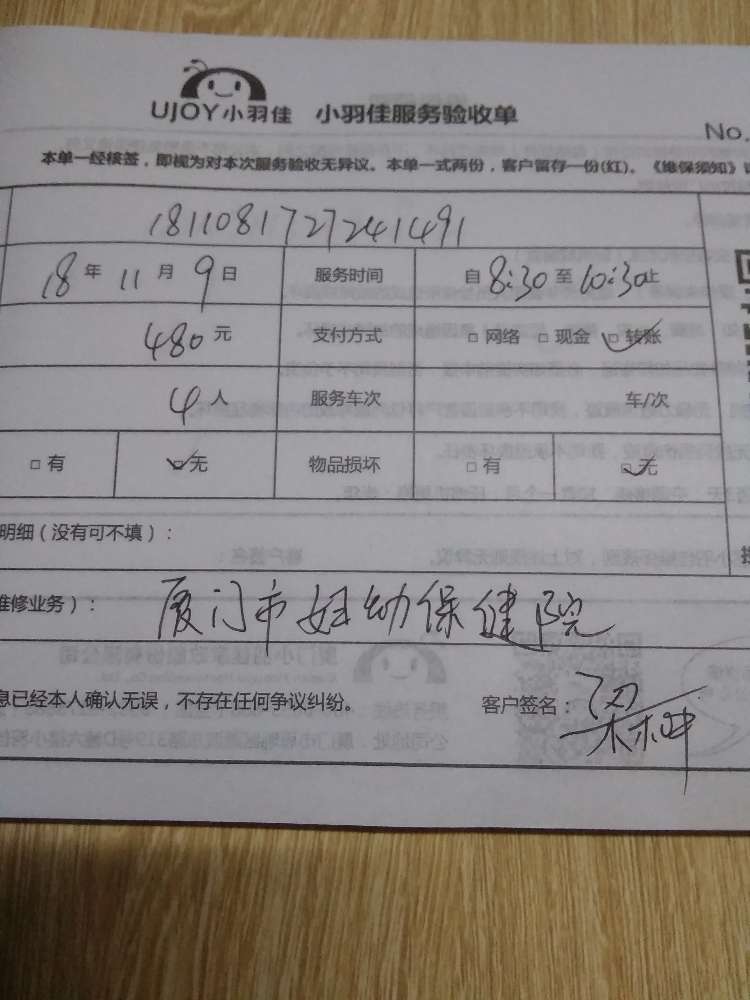 UJOY小羽佳 小羽佳服务验收单
No.
本单一经核签，即视为对本次服务验收无异议。本单一式两份，客户留存一份(红)。《维保须知》
1811081727241491
18年11月9日 服务时间 自8:30至10:30止
480元 支付方式 □网络 □现金 □转账
4人 服务车次 车/次
□有 □无 物品损坏 □有 □无
明细（没有可不填）：
维修业务）： 厦门市妇幼保健院
息已经本人确认无误，不存在任何争议纠纷。 客户签名：